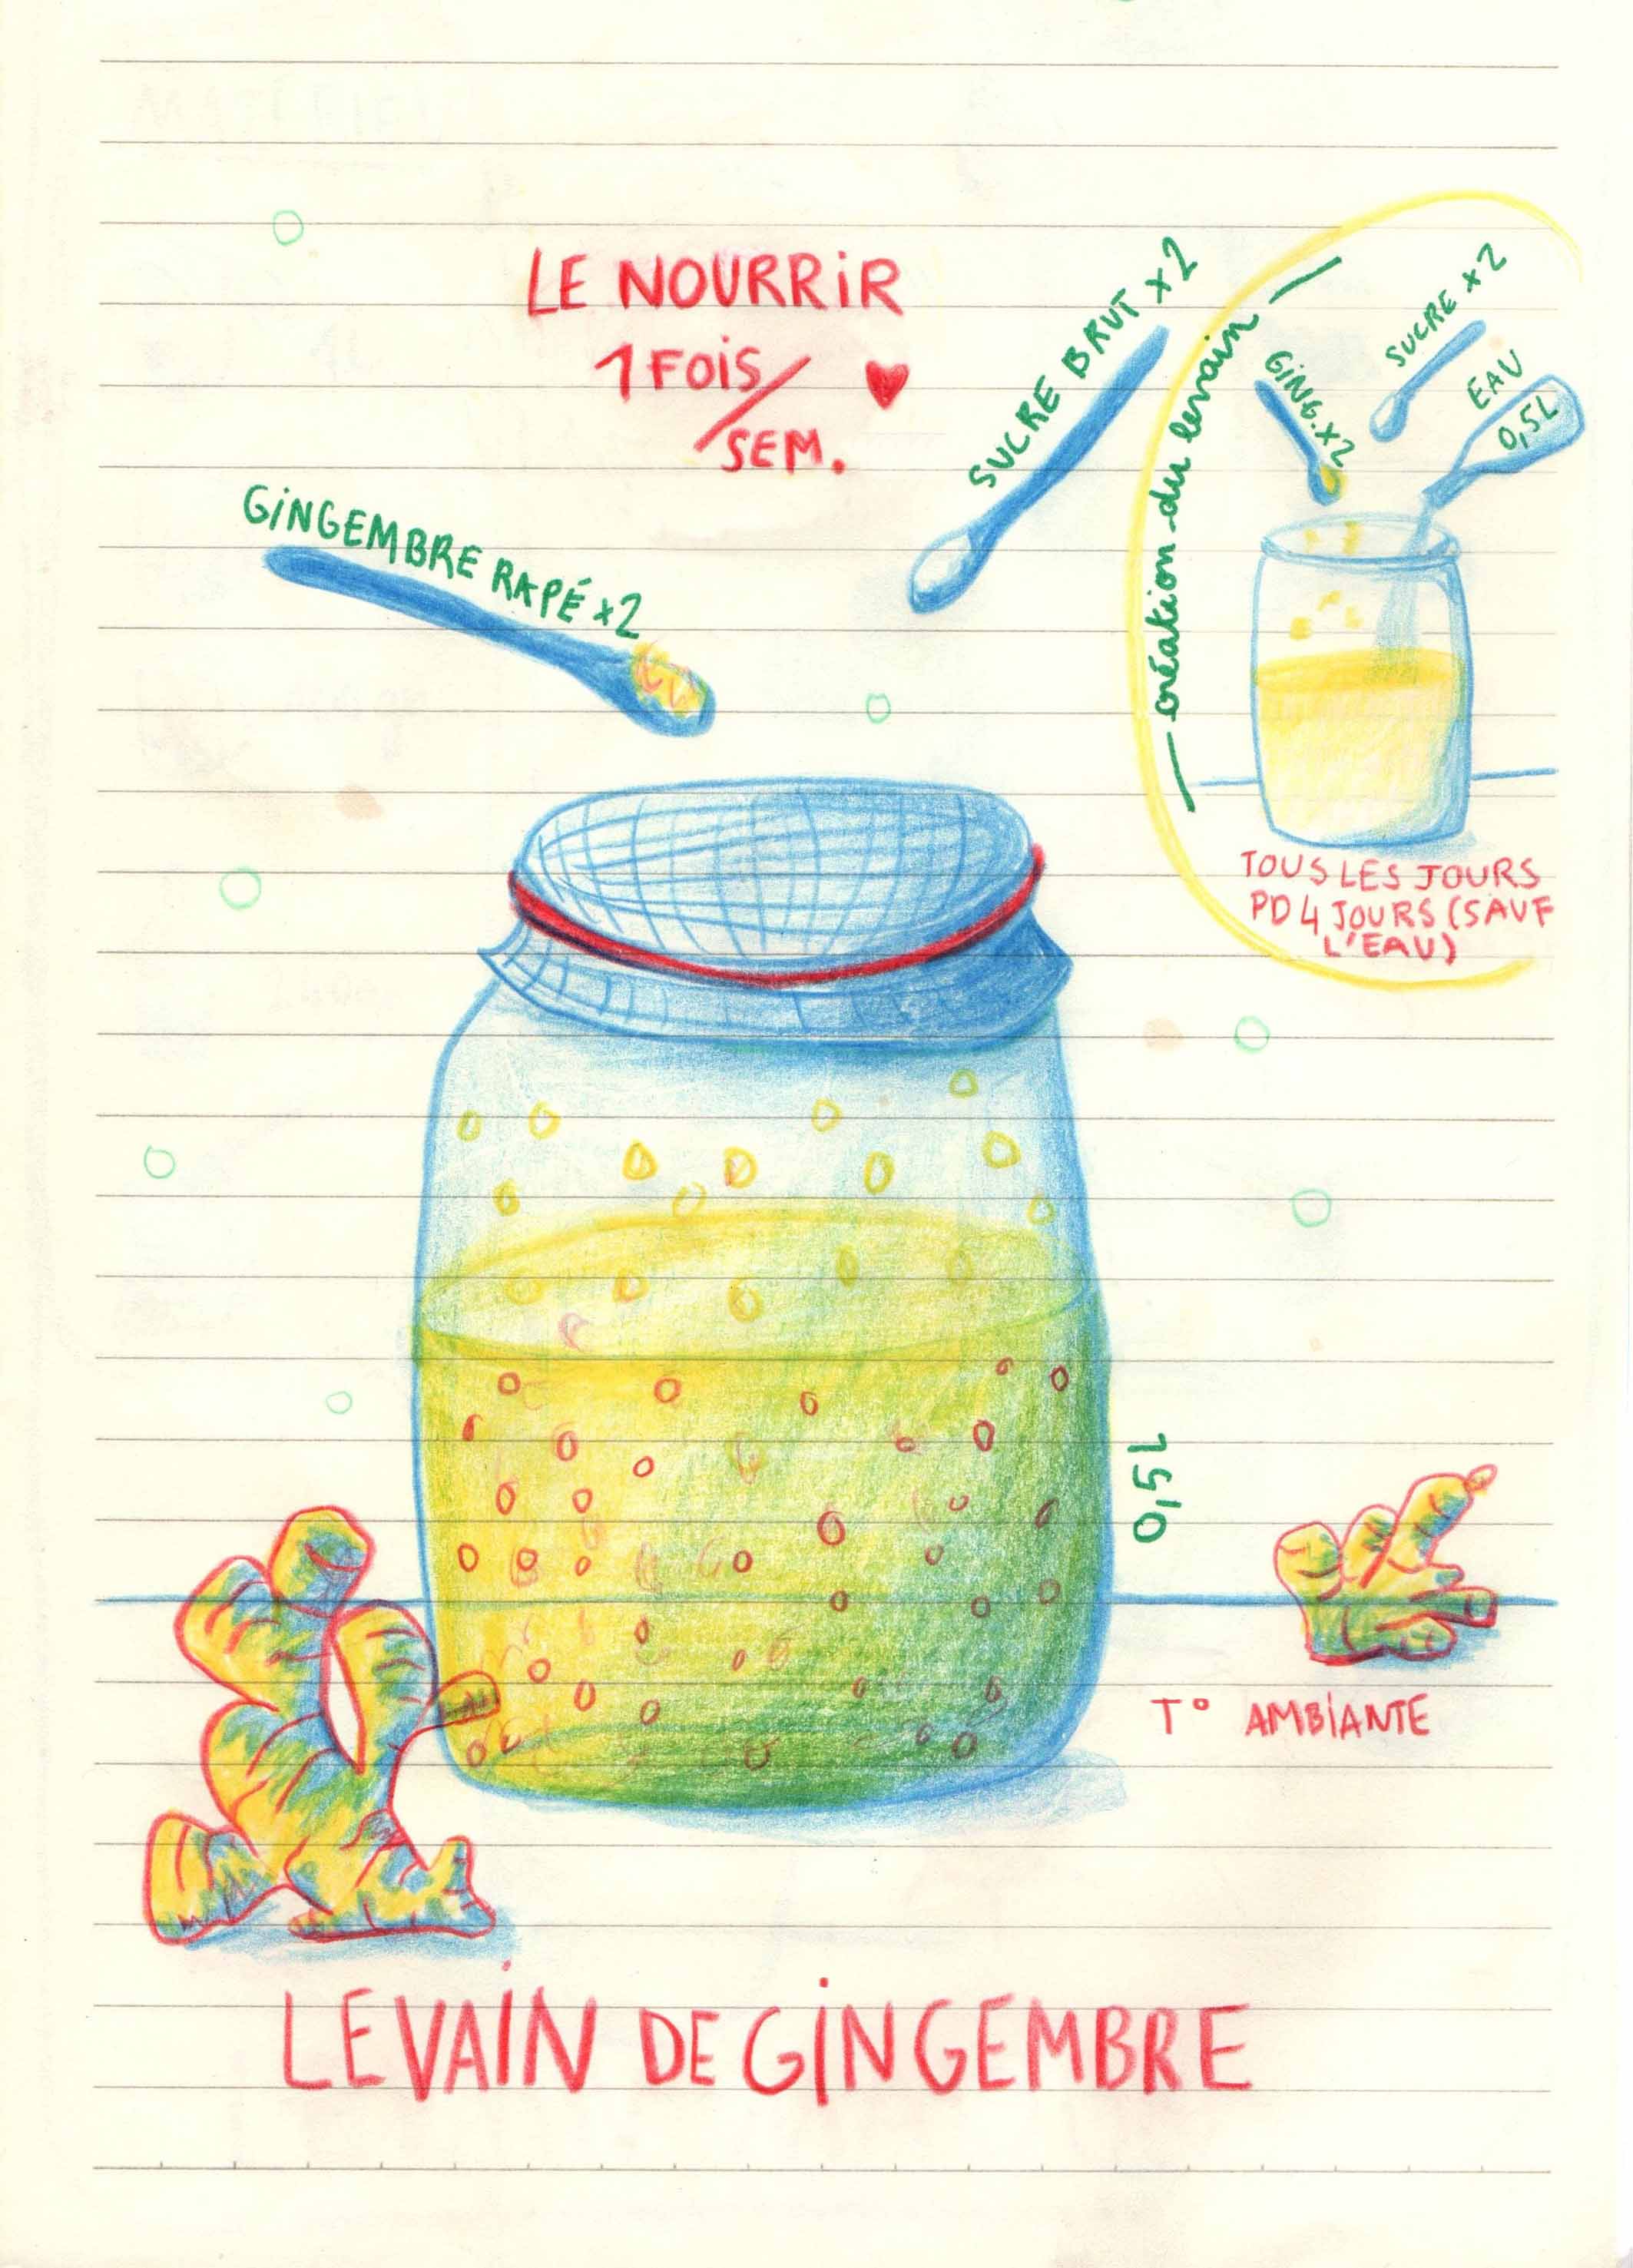 LE NOURRiR
1 FOiS/
SEM.
GiNGEMBRE RAPÉ x2
SUCRE BRUT x2
création du levain
GiNG. x2
SUCRE x2
EAU
0,5L
TOUS LES JOURS
PD 4 JOURS (SAUF
L'EAU)
0,5L
T° AMBiANTE
LEVAiN DE GiNGEMBRE